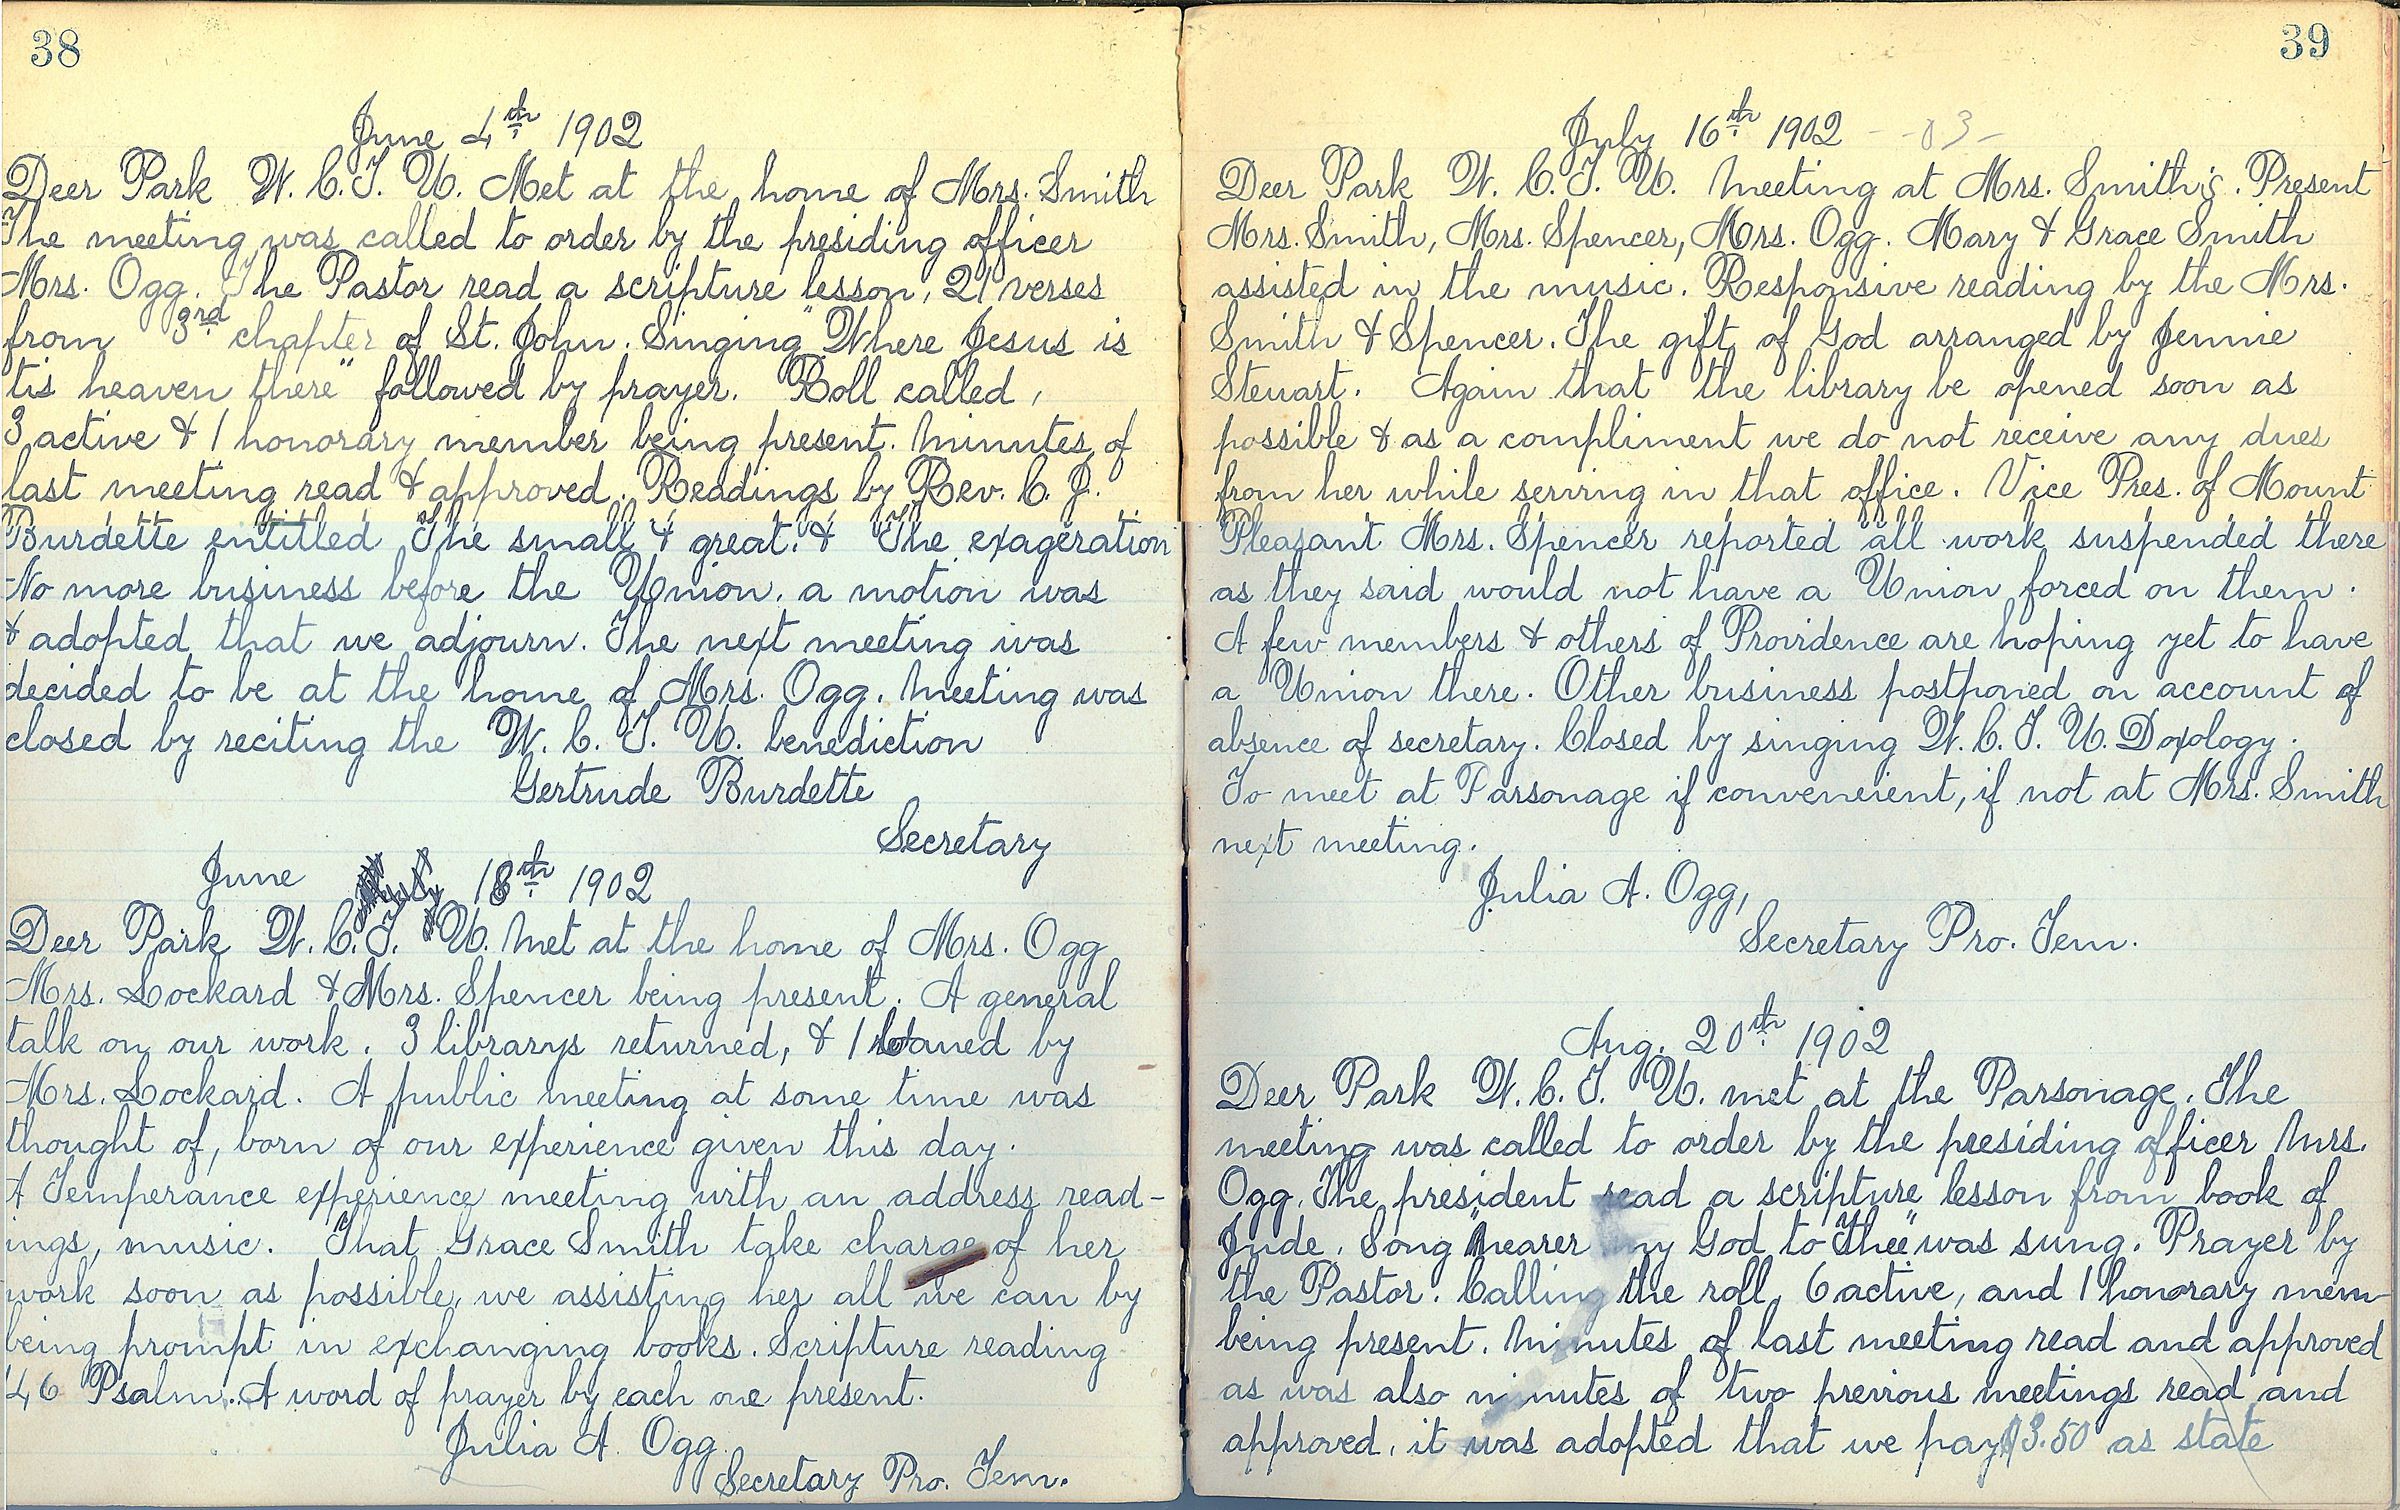 38
June 4th 1902
Deer Park W. C. T. U. Met at the home of Mrs. Smith
The meeting was called to order by the presiding officer
Mrs. Ogg. The Pastor read a scripture lesson, 21 verses
from 3rd chapter of St. John. Singing "Where Jesus is
tis heaven there" followed by prayer. Roll called,
3 active & 1 honorary member being present. Minutes of
last meeting read & approved. Readings by Rev. C. J.
Burdette entitled "The small & great." & "The exageration
No more business before the Union, a motion was
& adopted that we adjourn. The next meeting was
decided to be at the home of Mrs. Ogg. Meeting was
closed by reciting the W. C. T. U. benediction
Gertrude Burdette
Secretary
June 18th 1902
Deer Park W. C. T. U. Met at the home of Mrs. Ogg
Mrs. Lockard & Mrs. Spencer being present. A general
talk on our work. 3 librarys returned, & 1 loaned by
Mrs. Lockard. A public meeting at some time was
thought of, born of our experience given this day.
A Temperance experience meeting with an address read-
ings, music. That Grace Smith take charge of her
work soon as possible, we assisting her all we can by
being prompt in exchanging books. Scripture reading
46 Psalm. A word of prayer by each one present.
Julia A. Ogg
Secretary Pro. Tem.
39
July 16th 1902 - -03-
Deer Park W. C. T. U. Meeting at Mrs. Smith's. Present
Mrs. Smith, Mrs. Spencer, Mrs. Ogg. Mary & Grace Smith
assisted in the music. Responsive reading by the Mrs.
Smith & Spencer. The gift of God arranged by Jennie
Steuart. Again that the library be opened soon as
possible & as a compliment we do not receive any dues
from her while serving in that office. Vice Pres. of Mount
Pleasant Mrs. Spencer reported all work suspended there
as they said would not have a Union forced on them.
A few members & others of Providence are hoping yet to have
a Union there. Other business postponed on account of
absence of secretary. Closed by singing W. C. T. U. Doxology.
To meet at Parsonage if conveneient, if not at Mrs. Smith
next meeting.
Julia A. Ogg,
Secretary Pro. Tem.
Aug. 20th 1902
Deer Park W. C. T. U. met at the Parsonage. The
meeting was called to order by the presiding officer Mrs.
Ogg. The president read a scripture lesson from book of
Jude. Song "Nearer my God to Thee" was sung. Prayer by
the Pastor. Calling the roll, 6 active, and 1 honorary mem-
being present. Minutes of last meeting read and approved
as was also minutes of two previous meetings read and
approved, it was adopted that we pay $3.50 as state